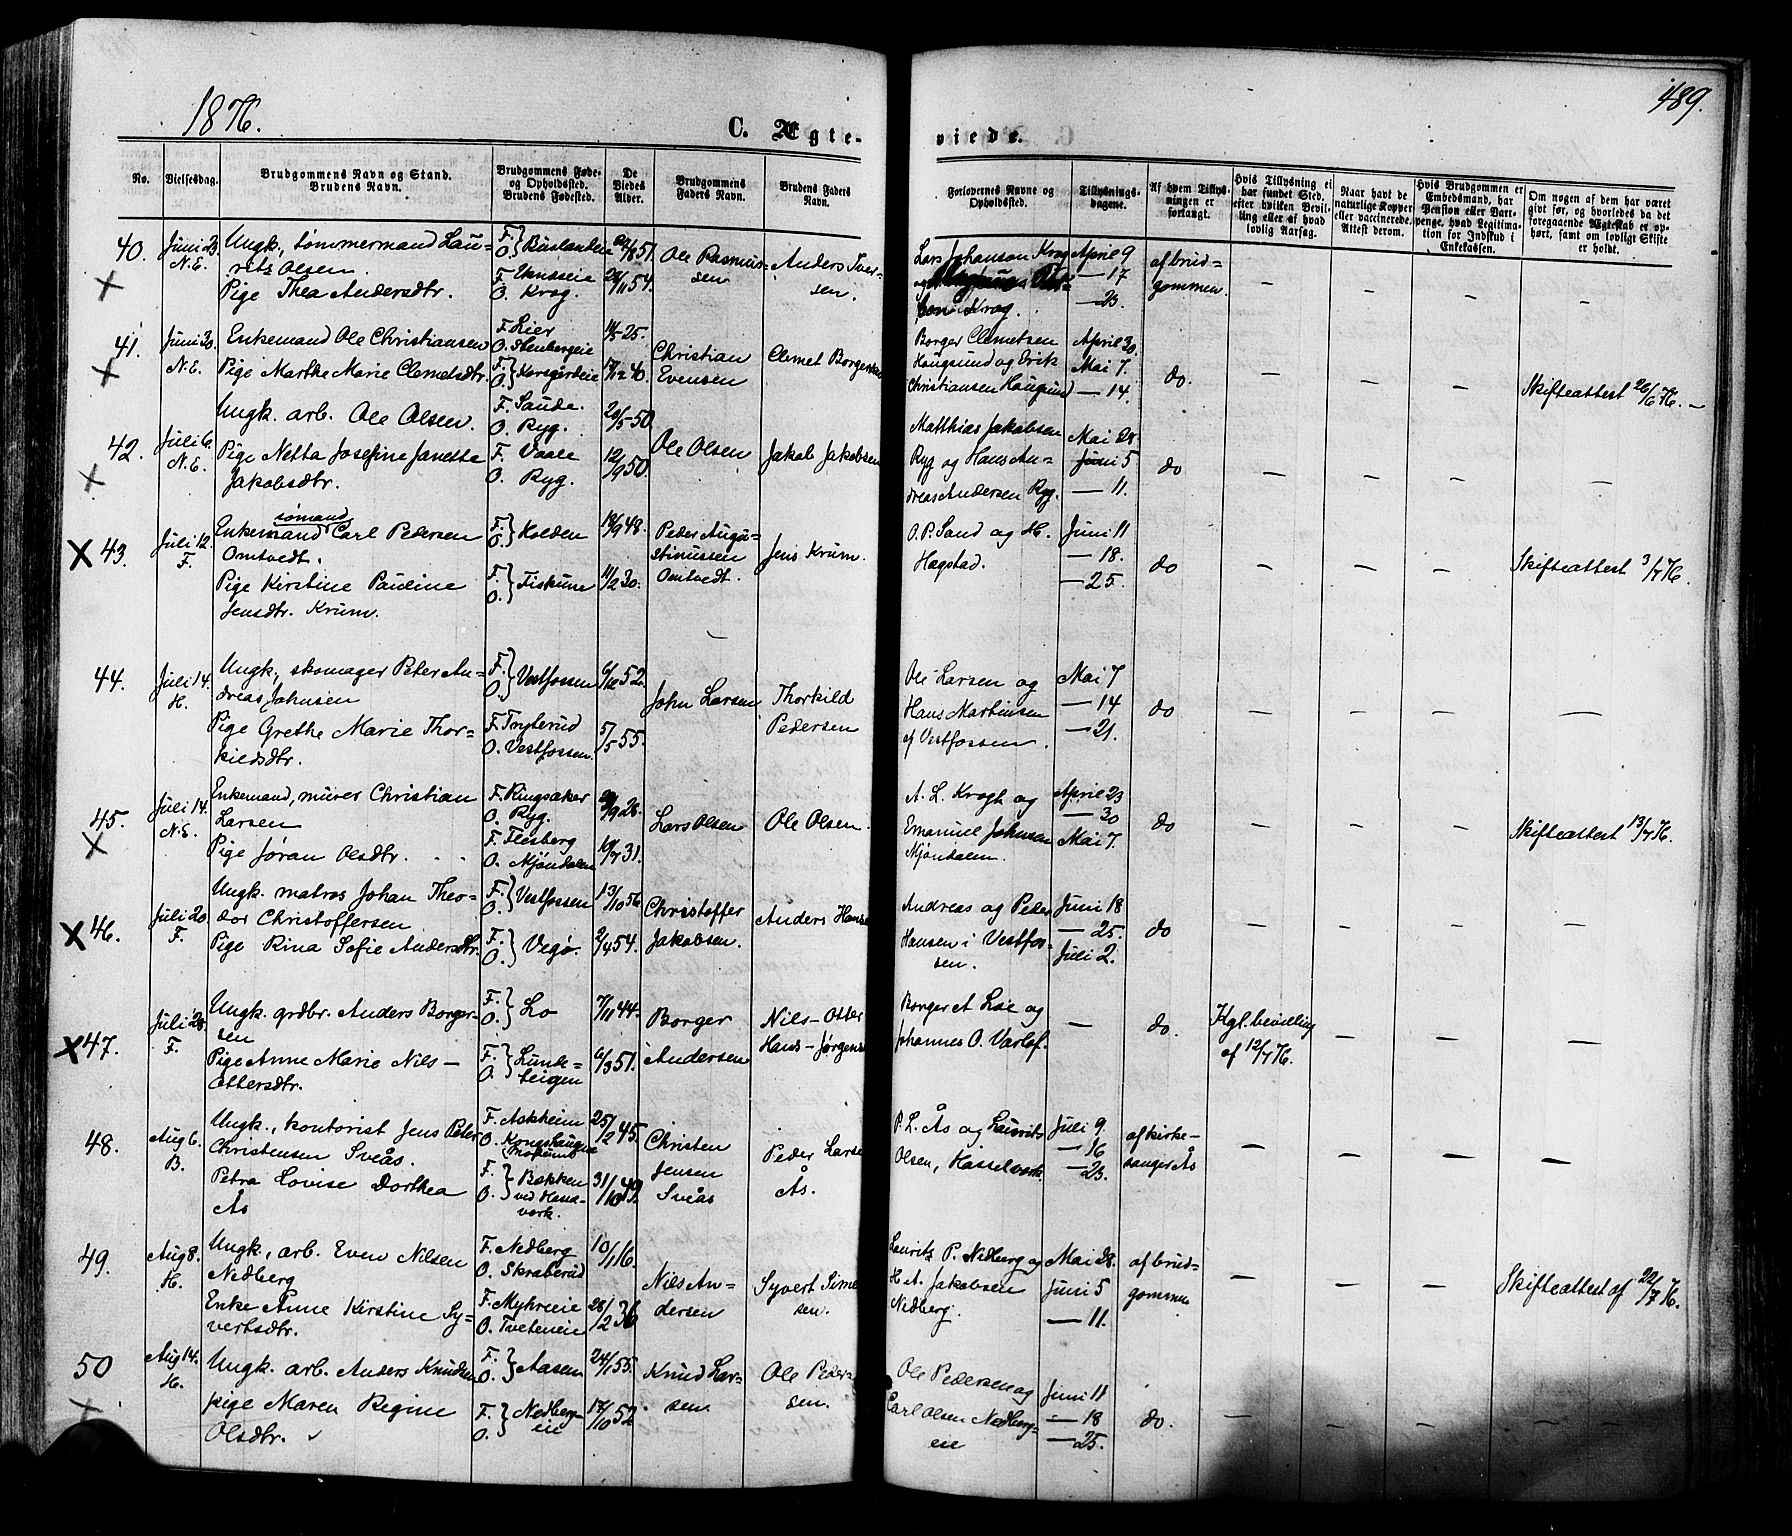 1876.
489.
C. Ægte-
viede.
No.
Vielsesdag.
Brudgommens Navn og Stand.
Brudens Navn.
Brudgommens Føde-
og Opholdsted.
Brudens Fødested.
De
Viedes
Alder.
Brudgommens
Faders Navn.
Brudens Faders
Navn.
Forlovernes Navne og
Opholdsted.
Tillysnings-
dagene.
Af hvem Tillys-
ningen er
forlangt.
Hvis Tillysning ei
har fundet Sted,
efter hvilken Bevil-
ling eller af hvad
lovlig Aarsag.
Naar havt de
naturlige Kopper
eller vaccinerede.
Attest derom.
Hvis Brudgommen er
Embedsmand, har
Pension eller Vart-
penge, hvad Legitima-
tion for Indskud i
Enkekassen.
Om nogen af dem har været
givt før, og hvorledes da det
foregaaende Ægteskab er op-
hørt, samt om lovligt Skifte
er holdt.
40. Juni 23 N.E.
Ungk., tømmermand Lau-
ritz Olsen.
Pige Thea Andersdtr.
F. O. Buslandeie
F.
O. Krog.
28/11 54.
Ole Rasmus-
sen
Anders Iver-
sen.
Lars Johansen Krog
og
sen i Krog.
April 9
— 17
— 23.
af brud-
gommen.
— — — —
41. Juni 30. N.E.
Enkemand Ole Christiansen
Pige Marthe Marie Clemetsdtr.
F. Lier
O. Stenbergeie
F. O. Korsgårdeie
11/5 25.
17/12 40.
Christian
Evensen
Clemet Borgersen
Borger Clemetsen
Haugsund og Erik
Christiansen Haugsund
April 30.
Mai 7.
— 14.
do.
— — —
Skifteattest 26/6 76. —
42. Juli 6. N.E.
Ungk. arb. Ole Olsen.
Pige Netta Josefine Janetta
Jakobsdtr.
F. Saude.
O. Ryg.
F. Vaale
O. Ryg.
29/5 50.
12/9 50.
Ole Olsen
Jakob Jakobsen
Matthias Jakobsen
Ryg og Hans An-
dreas Andersen Ryg.
Mai 28.
Juni 5
— 11.
do
— — — —
X 43. Juli 12. F.
sømand
Enkemand Carl Pedersen
Omtvedt.
Pige Kirstine Pauline
Jensdtr. Krum.
F. O. Kolden
F. O. Fiskum
18/9 48.
11/2 30.
Peder Augu-
stinussen
Omtvedt.
Jens Krum.
O. P. Sand og H.
Hagstad.
Juni 11
— 18.
— 25.
do
— — —
Skifteattest 3/7 76.
44. Juli 14. H.
Ungk., skomager Peter An-
dreas Johnsen
Pige Grethe Marie Thor-
kildsdtr.
F. O. Vestfossen
F. Tryterud
O. Vestfossen.
6/12 52.
5/5 55.
John Larsen
Thorkild
Pedersen
Ole Larsen og
Hans Martinsen
af Vestfossen.
Mai 7
— 14
— 21.
do
— — — —
45. Juli 14. N.E.
Enkemand, murer Christian
Larsen
Pige Jøran Olsdtr.
F. Ringsaker
O. Ryg.
F. Flesberg
O. Mjøndalen
Lars Olsen
Ole Olsen.
A. L. Krogh og
Emanuel Johnsen
Mjøndalen.
April 23
— 30
Mai 7.
do
— — —
Skifteattest 13/7 76.
X 46. Juli 20 F.
Ungk. matros Johan Theo-
dor Christoffersen
Pige Rina Sofie Andersdtr.
F. O. Vestfossen
F. O. Vegø.
13/10 56
2/4 54.
Christoffer
Jakobsen.
Anders Hans
Andreas og Peder
Hansen i Vestfos-
sen.
Juni 18
— 25.
Juli 2.
do
— — — —
X 47. Juli 28. F.
Ungk. grdbr. Anders Borger-
sen
Pige Anne Marie Nils-
Ottersdtr.
F. O. Lo
F. O. Lunde-
teigen
7/11 44.
6/3 51.
Borger
Andersen
Nils-Otter
Hans-Jørgens
Borger A. Loe og
Johannes O. Varlo.
—
do.
Kgl. bevilling
af 12/7 76.
— — —
48. Aug 6. B.
Ungk., kontorist Jens Peter
Christensen Sveås.
Petra Lovise Dorthea
Ås
F. Askheim
O. Kongshaugen
F. O. Bakken
ved Hassa-
værk.
25/2 45.
31/10 49.
Christen
Jensen
Sveås
Peder Lars
Ås.
P. L. Ås og Laurits
Olsen, Hasselværk.
Juli 9.
— 16
— 23.
af kirke-
sanger Ås
— — — —
49. Aug 8. H.
Ungk., arb. Even Nilsen
Nedberg
Enke Anne Kirstine Sy-
vertsdtr.
F. Nedberg
O. Skraberud
F. Myhreeie
O. Tveteneie
10/1 16.
28/2 36
Nils An-
dersen
Syvert Sime
sen.
Lauritz P. Nedberg og
H. A. Jakobsen
Nedberg.
Mai 28.
Juni 5
— 11.
af brud-
gommen
— — —
Skifteattest af 22/7 76.
50 Aug 14. H.
Ungk. arb. Anders Knudsen
pige Maren Regine
Olsdtr.
F. O. Aasen
F. O. Nedberg-
eie
24/1 55.
17/10 52
Knud Lar-
sen.
Ole Peder-
sen.
Ole Pedersen og
Carl Olsen Nedberg-
eie
Juni 11
— 18
— 25.
do.
— — — —